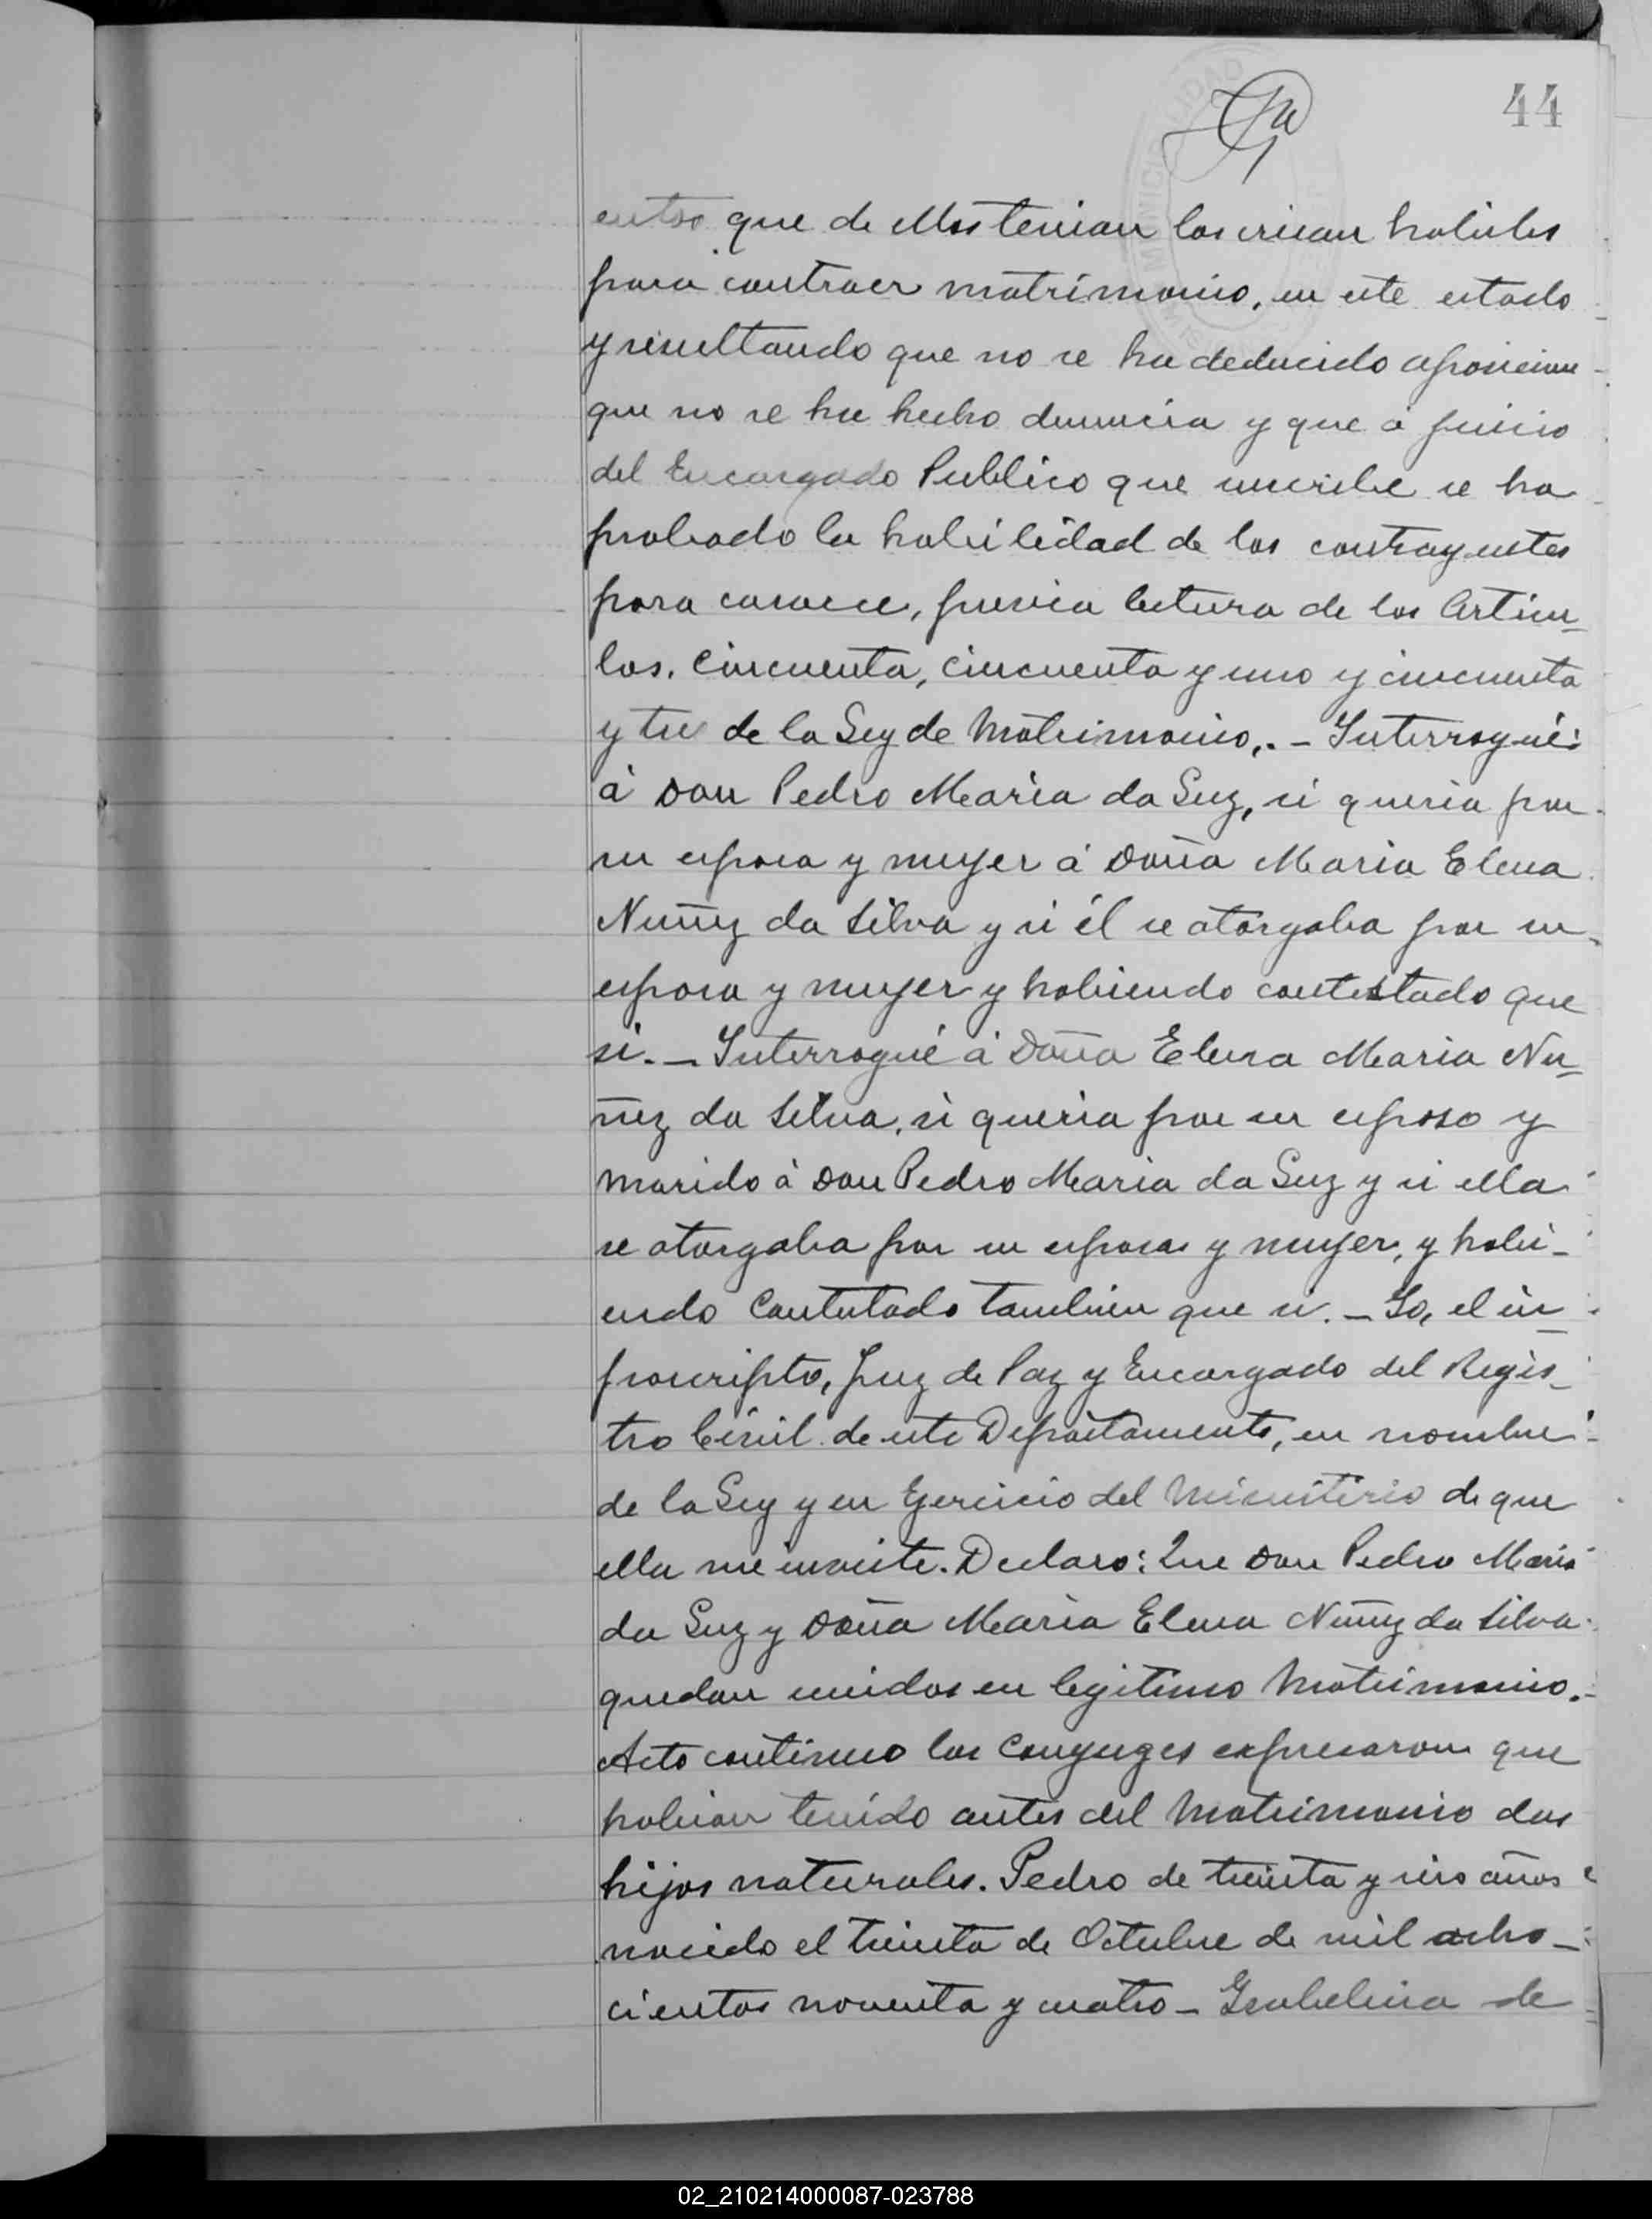 44
entos que de ellos tenian los creian habiles
para contraer matrimonio, en este estado
y resultando que no se ha deducido oposicion
que no se ha hecho denuncia y que á juicio
del Encargado Publico que suscribe se ha
probado la habilidad de los contrayentes
para casarse, previa lectura de los Articu-
los. Cincuenta, cincuenta y uno y cincuenta
y tres de la Ley de Matrimonio,. - Interrogué:
á Don Pedro Maria da Luz, si queria por
su esposa y mujer á Doña Maria Elena
Nuñez da Silva y si él se otorgaba por su
esposa y mujer y habiendo contestado que
si. - Interrogué á Doña Elena Maria Nu-
ñez da Silva, si queria por su esposo y
marido á Don Pedro Maria da Luz y si ella
se otorgaba por su esposa y mujer, y habi-
endo Contestado tambien que si. - Yo, el in
frascripto, Juez de Paz y Encargado del Regis-
tro Civil de este Departamento, en nombre
de la Ley y en Ejercicio del Ministerio de que
ella me inviste. Declaro: Que Don Pedro Maria
da Luz y Doña Maria Elena Nuñez da Silva
quedan unidos en legitimo Matrimonio.-
Acto continuo los Conyuges expresaron que
habian tenido antes del Matrimonio dos
hijos naturales. Pedro de treinta y seis años
nacido el treinta de Octubre de mil ocho-
cientos noventa y cuatro - Isabelina de
02_210214000087-023788